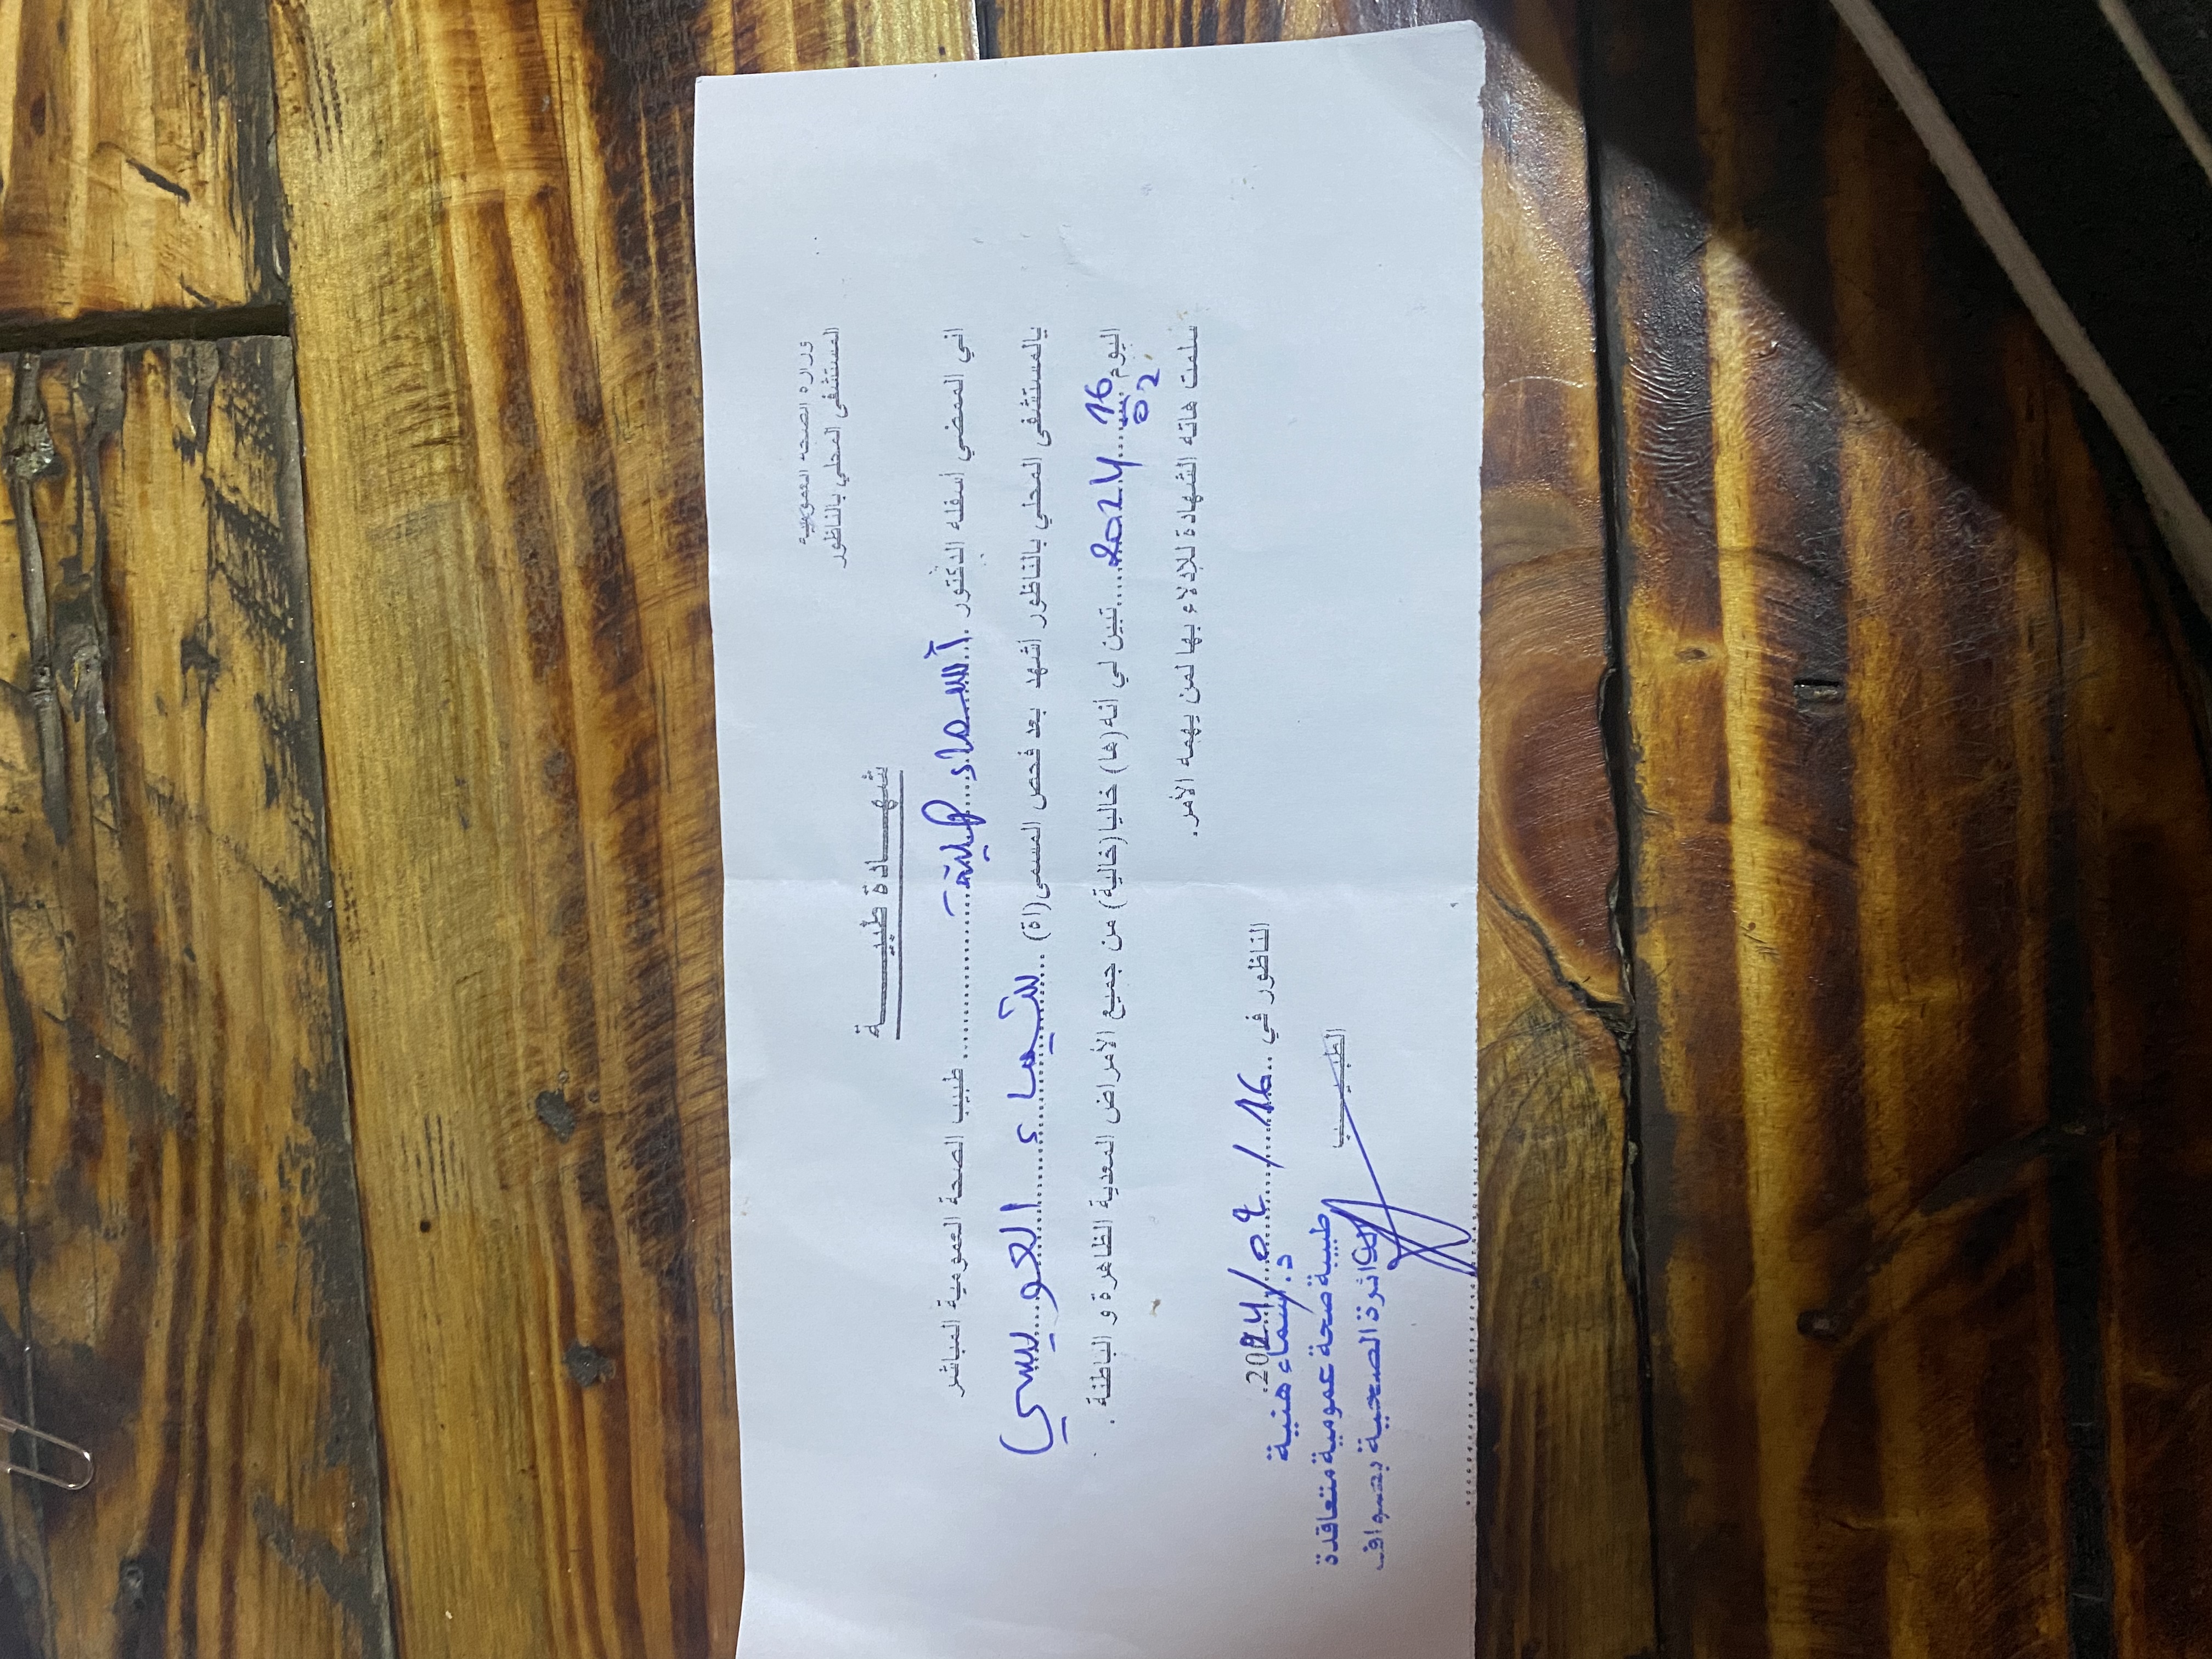 وزارة الصحة العمومية
المستشفى المحلي بالناظور
شهـــــادة طبيـــــة
اني الممضي أسفله الدكتور ...أسماء هنية... طبيب الصحة العمومية المباشر
بالمستشفى المحلي بالناظور أشهد بعد فحص المسمى(اة) ...شيماء العويسي
اليوم 16 02 2024 تبين لي أنه(ها) خاليا(خالية) من جميع الأمراض المعدية الظاهرة و الباطنة .
سلمت هاته الشهادة للإدلاء بها لمن يهمه الأمر.
الناظور في ..16/02/2024.
الطبيـــب
د. أسماء هنية
طبيبة صحة عمومية متعاقدة
الدائرة الصحية بصواف